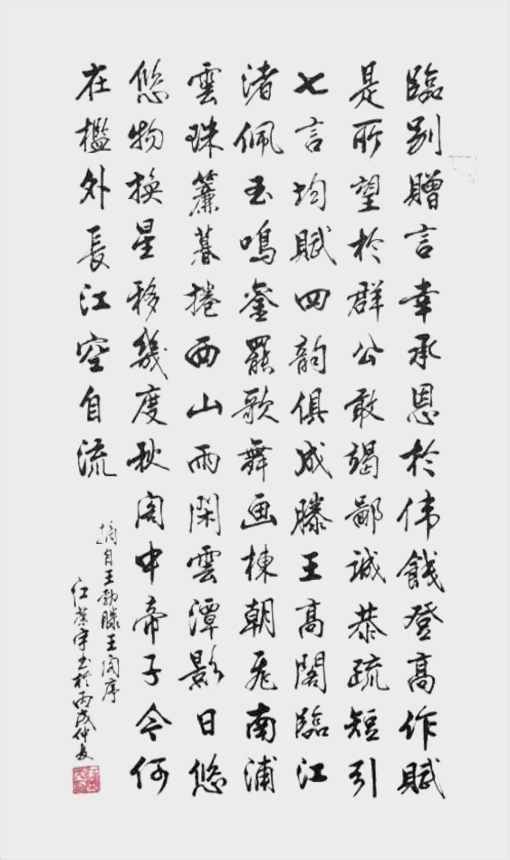 臨别贈言幸承恩於伟餞登高作賦
是所望於群公敢竭鄙诚恭疏短引
七言均賦四韵俱成滕王高閣臨江
渚佩玉鳴銮罷歌舞画棟朝飛南浦
雲珠簾暮捲西山雨闲雲潭影日悠
悠物换星移幾度秋阁中帝子今何
在檻外長江空自流
摘自王勃滕王阁序
江宇书於丙戌仲夏